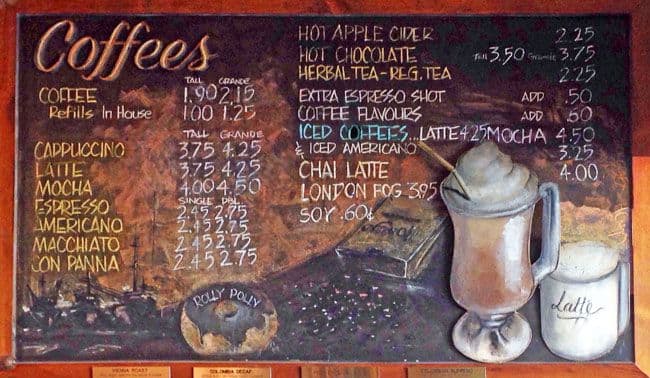 Coffees
TALL GRANDE
COFFEE 1.90 2.15
Refills In House 1.00 1.25
TALL GRANDE
CAPPUCCINO 3.75 4.25
LATTE 3.75 4.25
MOCHA 4.00 4.50
SINGLE DBL
ESPRESSO 2.45 2.75
AMERICANO 2.45 2.75
MACCHIATO 2.45 2.75
CON PANNA 2.45 2.75
HOT APPLE CIDER 2.25
HOT CHOCOLATE Tall 3.50 Grande 3.75
HERBAL TEA - REG. TEA 2.25
EXTRA ESPRESSO SHOT ADD .50
COFFEE FLAVOURS ADD .60
ICED COFFEES... LATTE 4.25 MOCHA 4.50
& ICED AMERICANO 3.25
CHAI LATTE 4.00
LONDON FOG 3.95
SOY .60¢
ROLLY POLLY
Latte
VIENNA ROAST
COLOMBIA DECAF